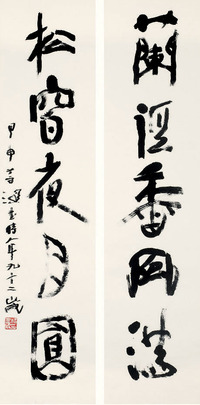 蘭徑香風滿
松窗夜月圓
甲申 時年九十二歲